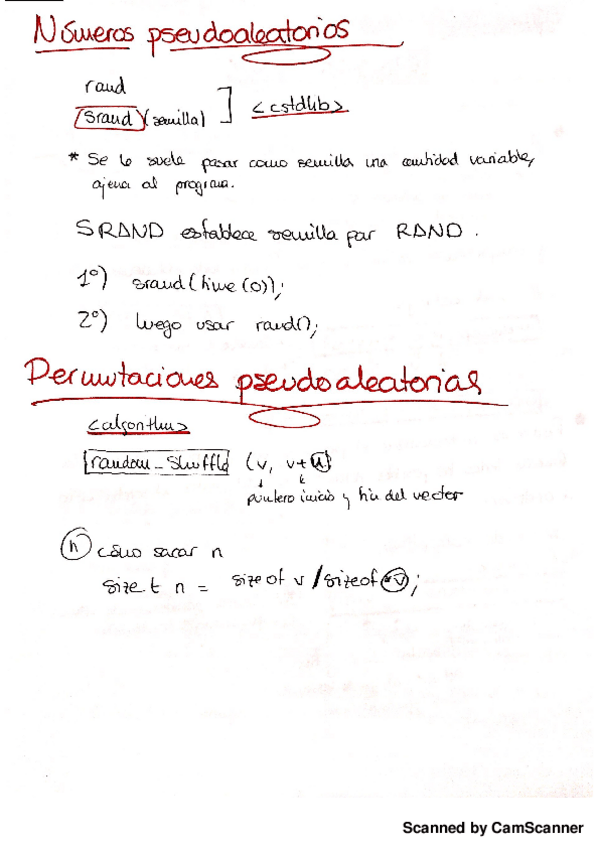 Números pseudoaleatorios
rand
srand (semilla) ] <cstdlib>
* Se le suele pasar como semilla una cantidad variable,
ajena al programa.
SRAND establece semilla par RAND.
1º) srand(time(0));
2º) luego usar rand();
Permutaciones pseudoaleatorias
<algorithm>
random_shuffle (v, v+n)
puntero inicio y fin del vector
n cómo sacar n
size t n = sizeof v / sizeof *v;
Scanned by CamScanner